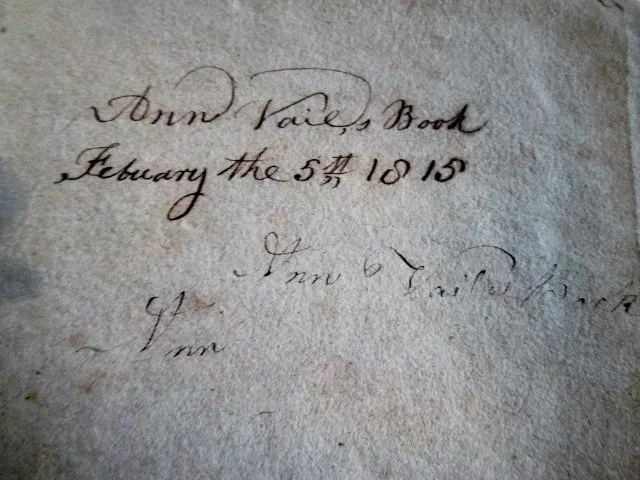 Ann Vail,s Book
Febuary the 5th 1818
Ann Vail,s Book
Ann